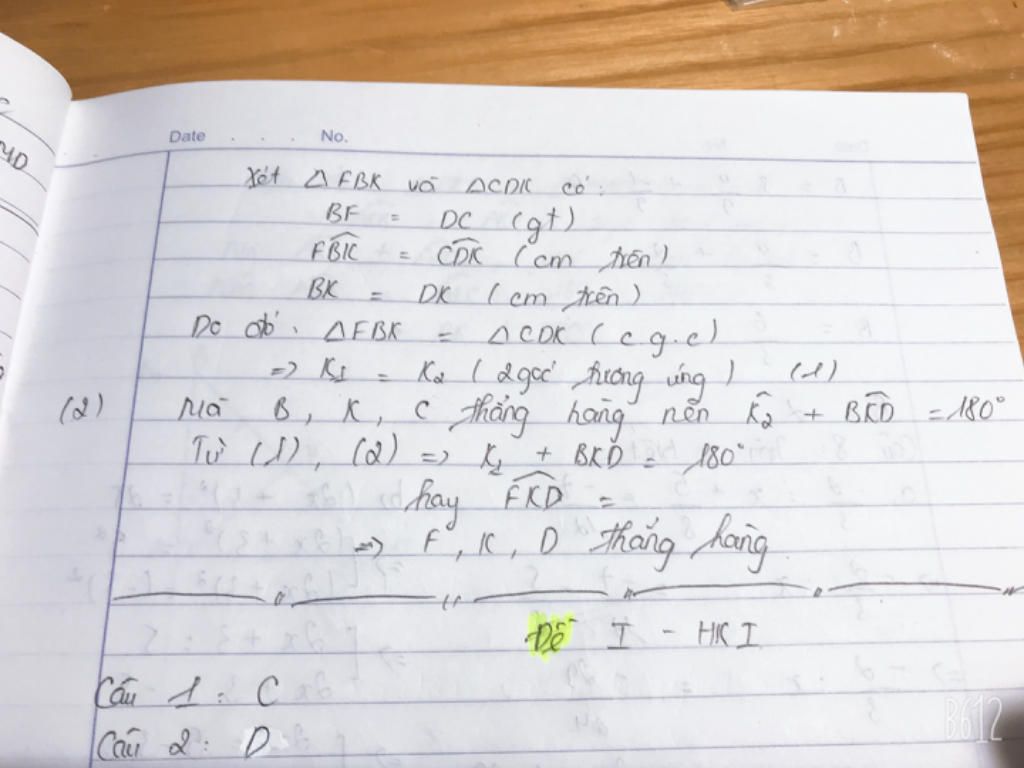 Date . . . No.
Xét △FBK và △CDK có:
BF = DC (gt)
FBK = CDK (cm trên)
BK = DK (cm trên)
Do đó: △FBK = △CDK (c.g.c)
=> K1 = K2 (2 góc tương ứng) (1)
(2) Mà B, K, C thẳng hàng nên K2 + BKD = 180°
Từ (1), (2) => K1 + BKD = 180°
hay FKD =
=> F, K, D thẳng hàng
Đề I - HKI
Câu 1: C
Câu 2: D
B612